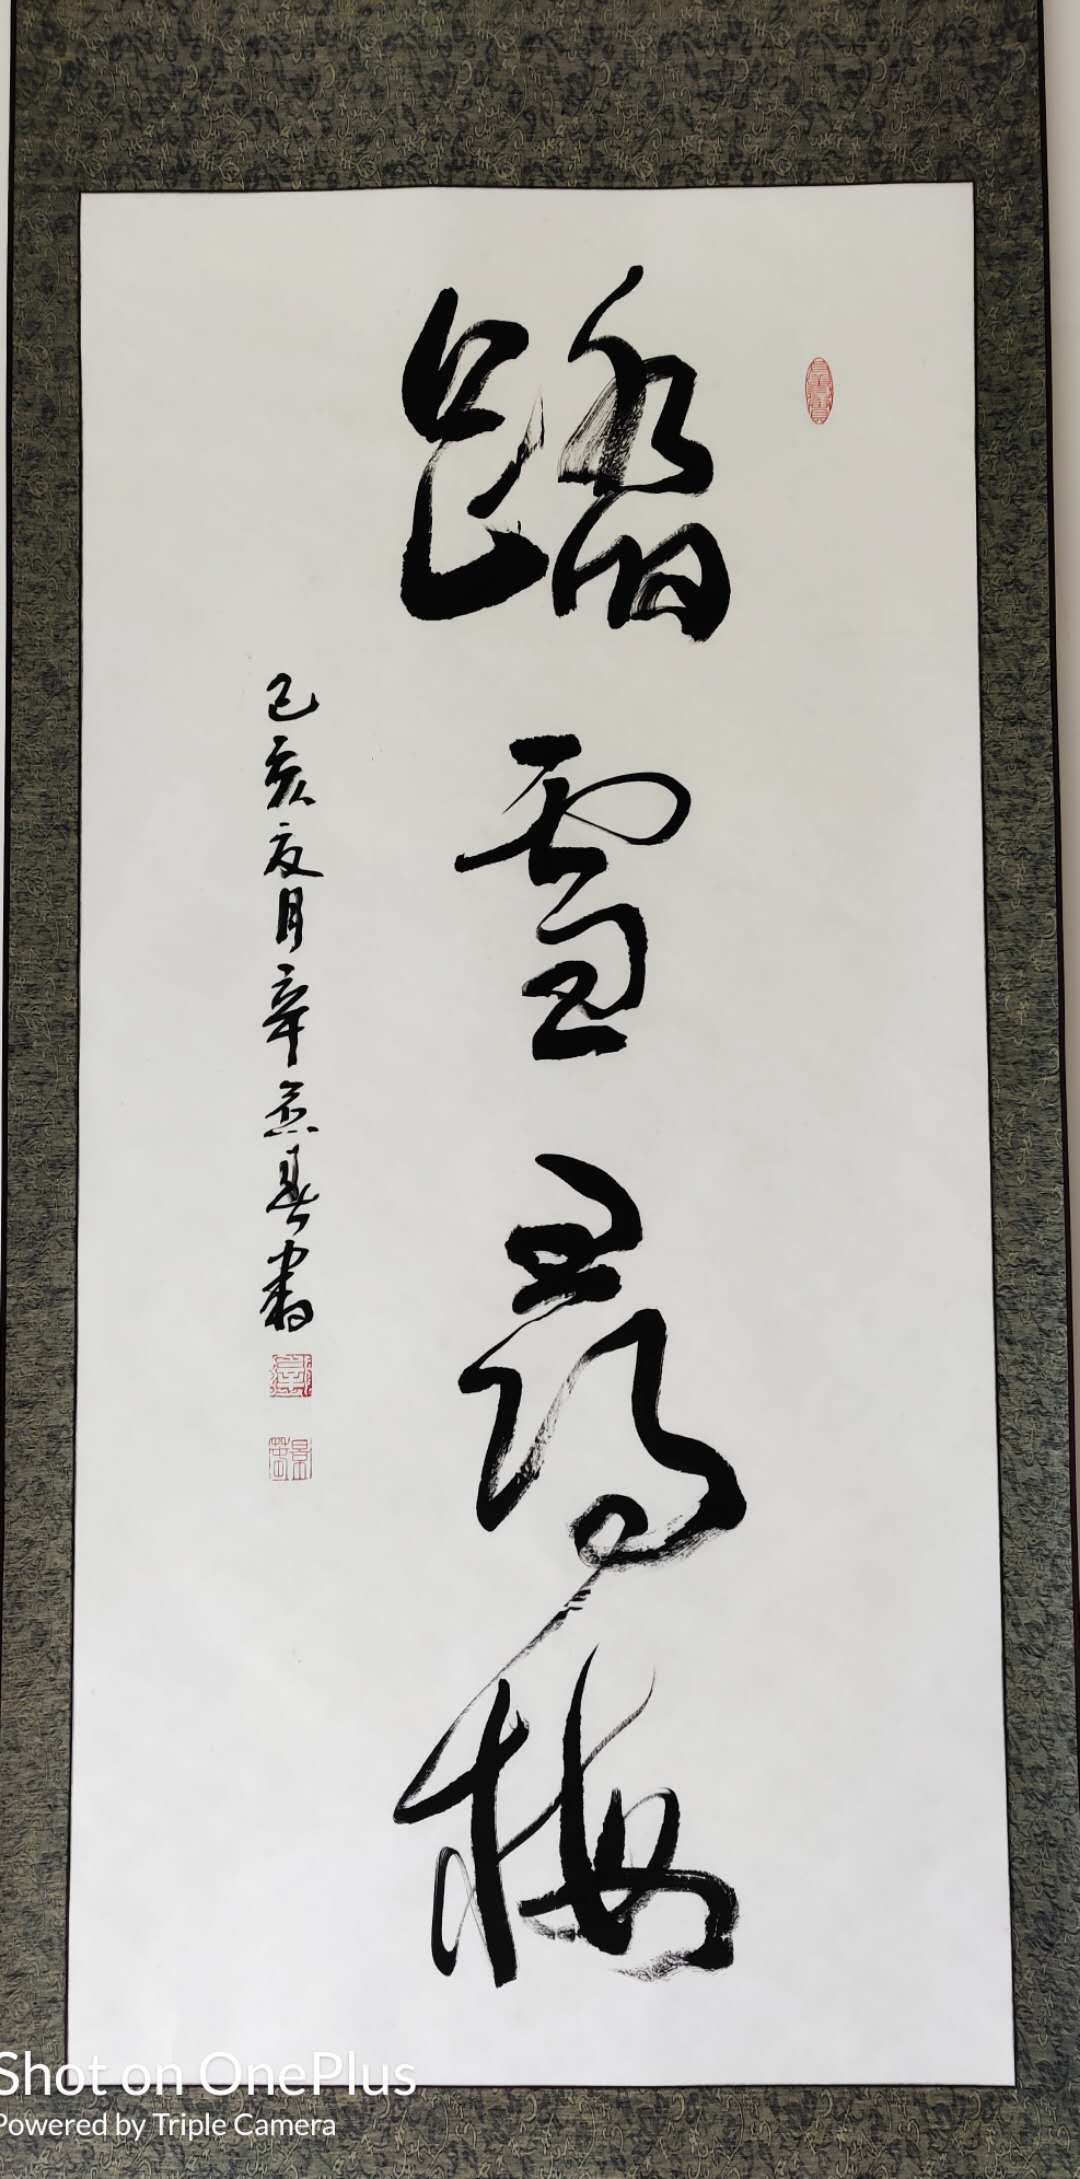 踏雪尋梅
己亥夏月辛景春書
Shot on OnePlus
Powered by Triple Camera